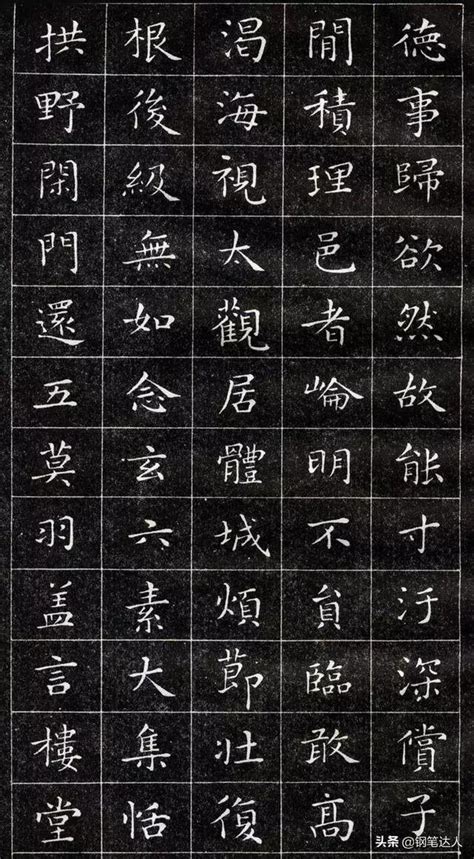 德事歸欲然故能寸汙深償子
閒積理邑者崘明不貟臨敢髙
渴海視太觀居體城煩節壯復
根後級無如念玄六素大集恬
拱野閑門還五莫羽盖言樓堂
头条 @钢笔达人